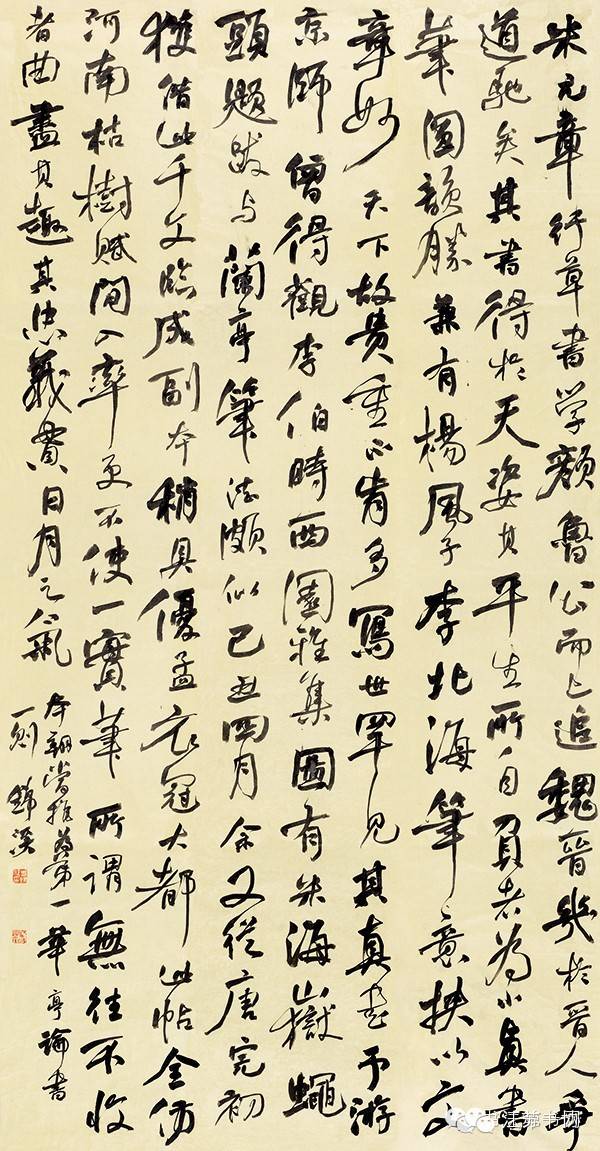 米元章行草書学顏魯公而上追魏晉幾於晋人爭
道馳矣其書得於天姿其平生所自負者為小真書
筆圓韻勝兼有楊風子李北海筆意挟以文
章妙天下故貴重不肯多寫世罕見其真書予游
京師曾得觀李伯時西園雅集圖有米海嶽蠅
頭題跋与蘭亭筆法頗似己丑四月余又從唐完初
獲借此千文臨成副本稍具優孟衣冠大都此帖全仿
河南枯樹賦間入率更不使一實筆所謂無往不收
者曲盡其趣其忠義貫日月之氣
本朝當推為第一華亭論書
一則 錦溪